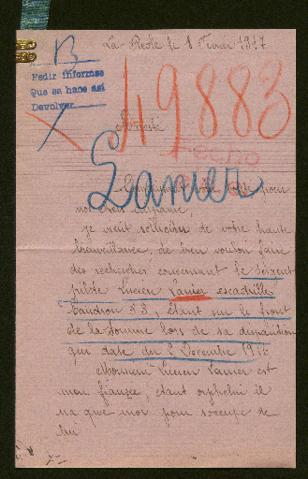 La Réole le 1 Février 1917
B
Pedir informes
Que se hace así
Devolver
49883
Hecho
Majesté
Lanier
Connaissant votre bonté pour
nos chers disparus,
je viens solliciter de votre haute
bienveillance, de bien vouloir faire
des recherches concernant le sergent
pilote Lucien Lanier escadrille
Caudron 53, étant sur le front
de la Somme lors de sa disparition
qui date du 2 Décembre
Monsieur Lucien Lanier est
mon fiancé, étant orphelin il
n'a que moi pour s'occupe de
lui